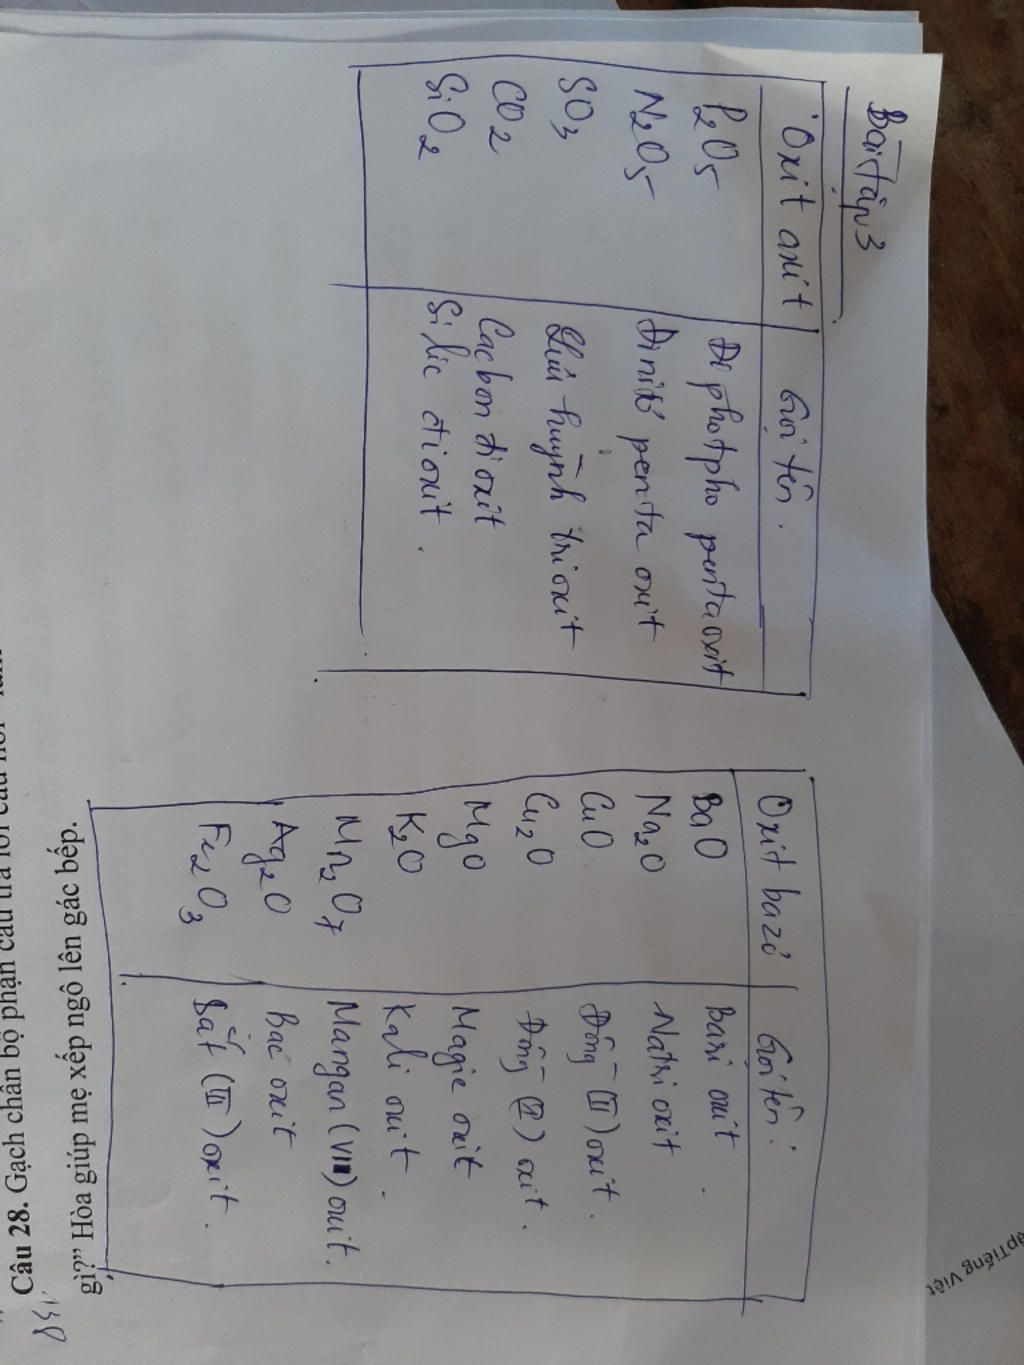 Bài tập 3
Oxit axit Gọi tên.
P2O5 Đi photpho pentaoxit
N2O5 Đinitơ penta oxit
SO3 Lưu huỳnh tri oxit
CO2 Cacbon đi oxit
SiO2 Silic đi oxit.
Oxit bazơ Gọi tên:
BaO Bari oxit
Na2O Natri oxit.
CuO Đồng (II) oxit.
Cu2O Đồng (I) oxit.
MgO Magie oxit
K2O Kali oxit.
Mn2O7 Mangan (VII) oxit.
Ag2O Bạc oxit
Fe2O3 Sắt (III) oxit.
Câu 28. Gạch chân bộ phận câu trả lời câu hỏi
gì?” Hòa giúp mẹ xếp ngô lên gác bếp.
Tiếng Việt